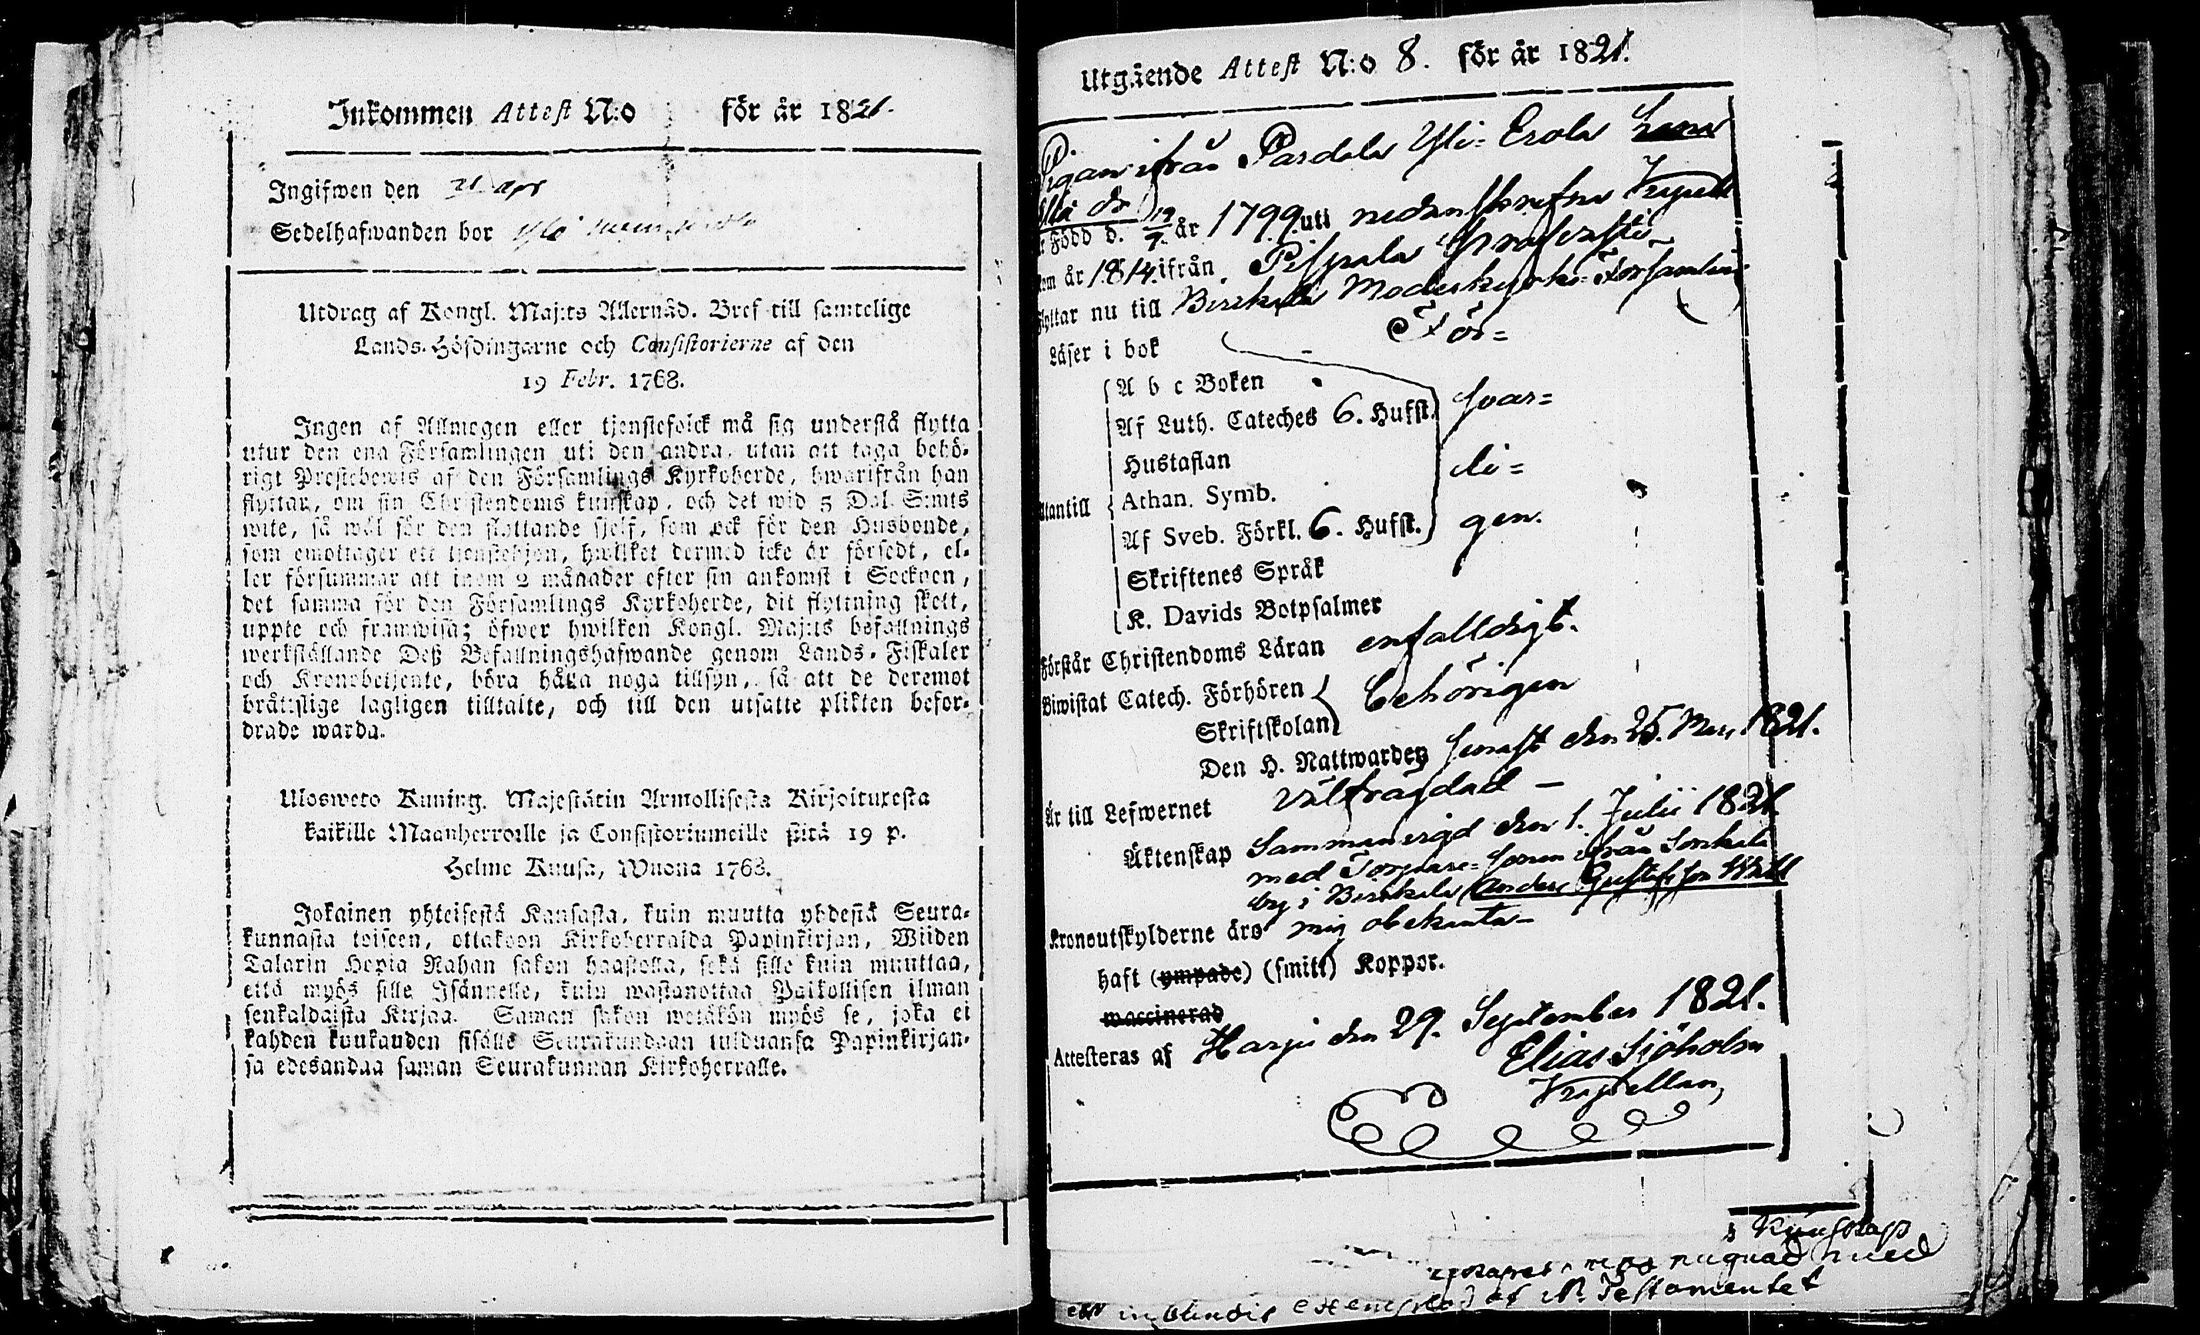 Inkommen Attest N:o för år 1821.
Ingifwen den 21 apr
Sedelhafwanden bor
Utdrag af Kongl. Maj:ts Allernåd. Bref till samtelige
Lands-Höfdingarne och Consistorierne af den
19 Febr. 1768.
Ingen af Allmogen eller tjenstefolck må sig understå flytta
utur den ena Församlingen uti den andra, utan att taga behö-
rigt Prestebewis af den Församlings Kyrkoherde, hwarifrån han
flyttar, om sin Christendoms kunskap, och det wid 5 Dal. S:mts
wite, så wäl för den flyttande sjelf, som ock för den Husbonde,
som emottager ett tjenstehjon, hwilket dermed icke är försedt, el-
ler försummar att inom 2 månader efter sin ankomst i Socknen,
det samma för den Församlings Kyrkoherde, dit flyttning skett,
uppte och framwisa; öfwer hwilken Kongl. Maj:ts befallnings
werkställande Deß Befallningshafwande genom Lands-Fiskaler
och Kronobetjente, böra hålla noga tillsyn, så att de deremot
bråttslige lagligen tilltalte, och till den utsatte plikten befor-
drade warda.
Ulosweto Kuning. Majestätin Armollisesta Kirjoituxesta
kaikille Maanherroille ja Consistoriumeille siitä 19 p.
Helme Kuusa, Wuona 1768.
Jokainen yhteisestä Kansasta, kuin muutta yhdestä Seura-
kunnasta toiseen, ottakoon Kirkoherralda Papinkirjan, Wiiden
Talarin Hopia Rahan sakon haastolla, sekä sille kuin muuttaa,
että myös sille Isännelle, kuin wastanottaa Palkollisen ilman
senkaldaista Kirjaa. Saman sakon wetäkön myös se, joka ei
kahden kuukauden sisälle Seurakundaan tulduansa Papinkirjan-
sa edesandaa saman Seurakunnan Kirkoherralle.
Utgående Attest N:o 8. för år 1821.
Pigan ifrån Pardala Yli-Erola
Född d. 19/7. år 1799. uti nedanskrefne Kapell
kom år 1814. ifrån Pispala
flyttar nu till Birkala Moderkyrko-Församling
Läser i bok För=
A b c Boken
Af Luth. Cateches 6. Hufst. svar=
Hustaflan li=
Utantill Athan. Symb.
Af Sveb. Förkl. 6. Hufst. gen.
Skriftenes Språk
K. Davids Botpsalmer
Förstår Christendoms Läran enfalldigt.
Biwistat Catech. Förhören behörigen
Skriftskolan
Den H. Nattwarden senast den 25. Mars 1821.
Är till Lefwernet välfrägdad –
Äktenskap Sammanvigd den 1. Julii 1821.
med Torpare-Sonen ifrån Sorkala
by i Birkala Anders Gustafsson
Kronoutskylderne äro mig obekanta –
haft (ympade) (smitt) Koppor.
waccinerad
Attesteras af Harju den 29. September 1821.
Elias Sjöholm
Kapellan,
Kunskap
med
exemplar af N. Testamentet